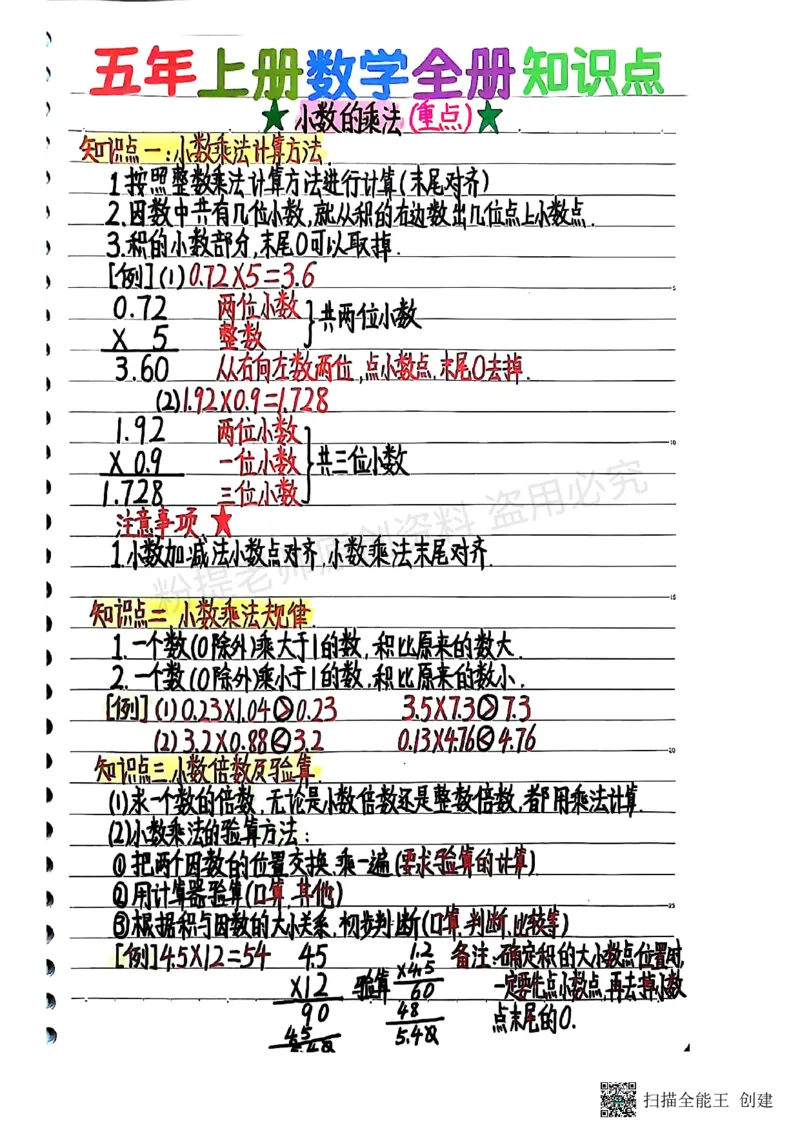 五年上册数学全册知识点
★小数的乘法(重点)★
知识点一:小数乘法计算方法
1.按照整数乘法计算方法进行计算(末尾对齐)
2.因数中共有几位小数,就从积的右边数出几位点上小数点.
3.积的小数部分,末尾0可以取掉.
[例](1)0.72×5=3.6
0.72 两位小数
× 5 整数 }共两位小数
3.60 从右向左数两位,点小数点.末尾0去掉.
(2)1.92×0.9=1.728
1.92 两位小数
× 0.9 一位小数 }共三位小数
1.728 三位小数
注意事项 ★
1.小数加减法小数点对齐,小数乘法末尾对齐.
粉提老师原创资料 盗用必究
知识点二 小数乘法规律
1.一个数(0除外)乘大于1的数,积比原来的数大.
2.一个数(0除外)乘小于1的数,积比原来的数小.
[例](1)0.23×1.04>0.23 3.5×7.3>7.3
(2)3.2×0.88<3.2 0.13×4.76<4.76
知识点三.小数倍数及验算.
(1)求一个数的倍数,无论是小数倍数还是整数倍数,都用乘法计算.
(2)小数乘法的验算方法:
①把两个因数的位置交换.乘一遍(要求验算的计算)
②用计算器验算(口算,其他)
③根据积与因数的大小关系.初步判断(口算.判断.比较等)
[例]4.5×12=54 4.5 1.2 备注:确定积的大小数点位置时,
×12 验算 ×4.5 一定要先点小数点,再去掉小数
90 60 点末尾的0.
45 48
5.40 5.40
扫描全能王 创建